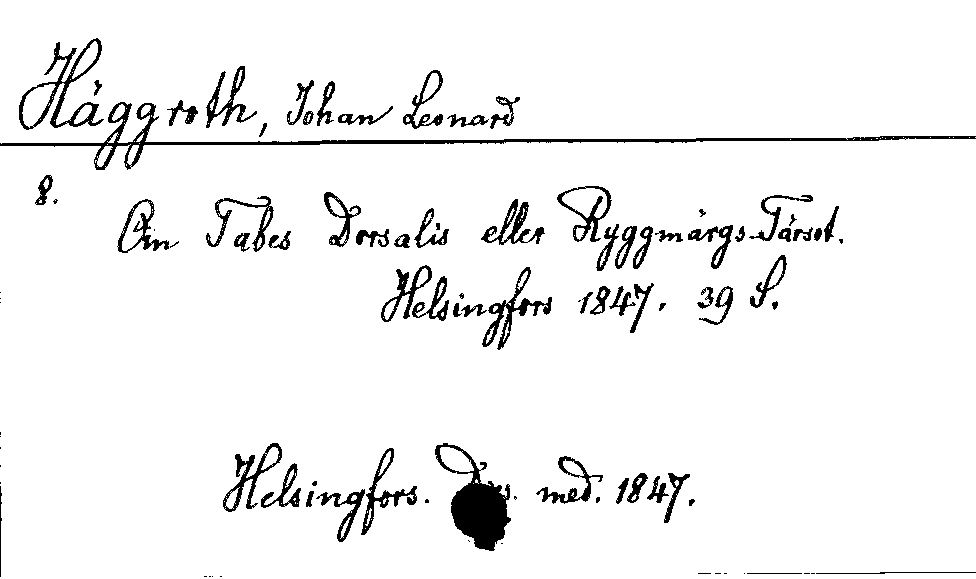 Häggroth, Johan Leonard
8.
Om Tabes Dorsalis eller Ryggmärgs-Tärsot.
Helsingfors 1847. 39 S.
Helsingfors. Diss. med. 1847.